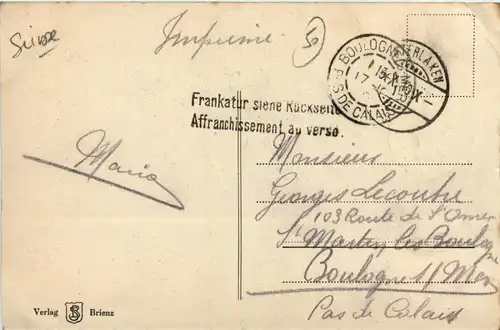 Suisse
Imprimé
50
BOULOGNE
INTERLAKEN
P. DE CALAIS
Frankatur siehe Rückseite
Affranchissement au verso.
Maria
Monsieur
Georges Lecoutre
103 Route de St Omer
St Martin les Boulogne
Boulogne s/Mer
Pas de Calais
Verlag SB Brienz